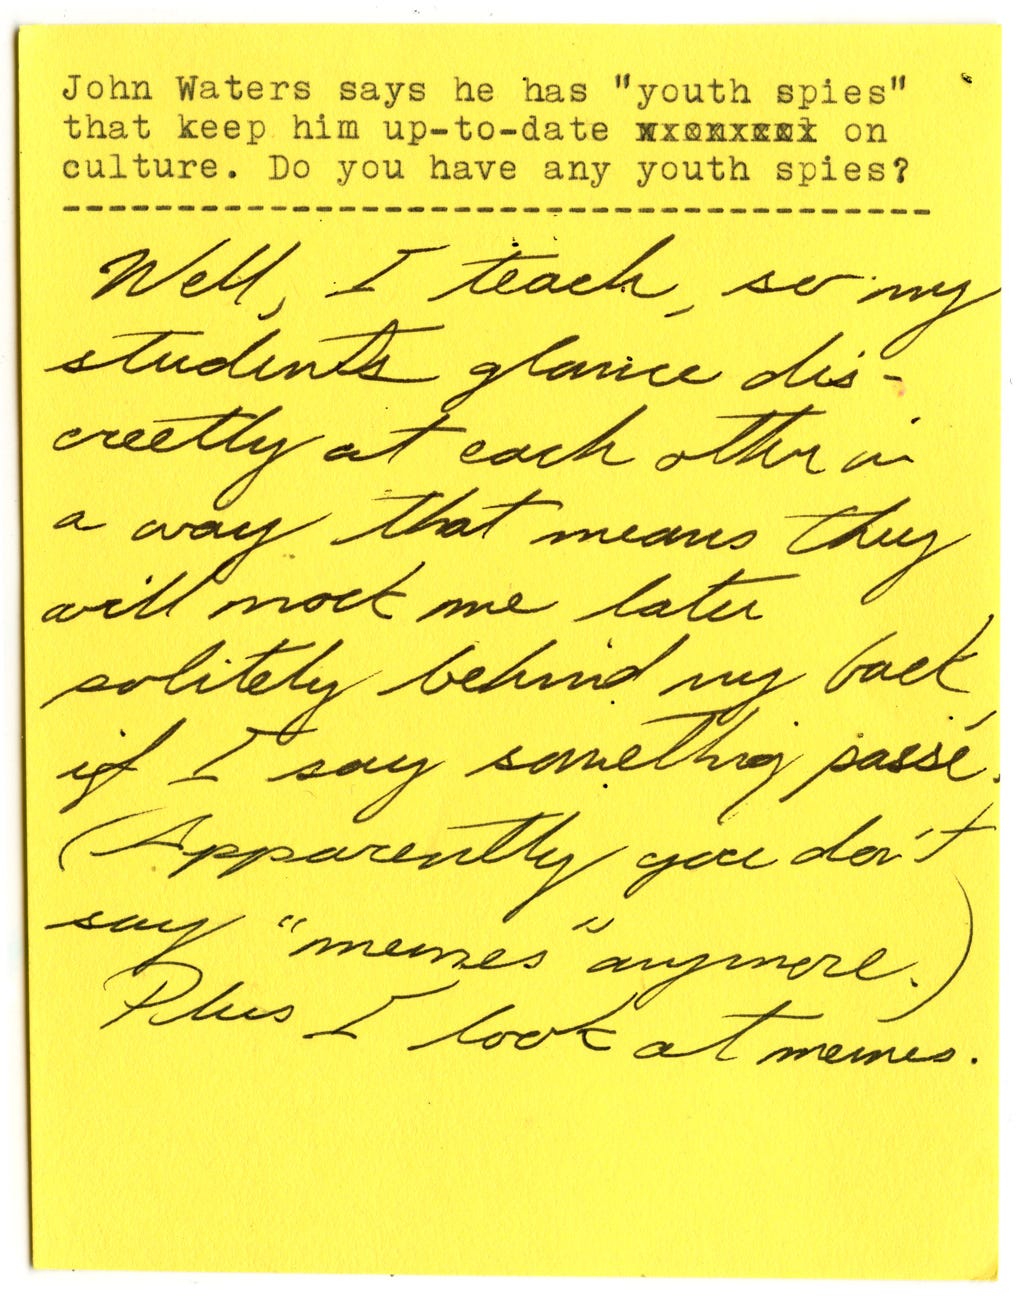 John Waters says he has "youth spies"
that keep him up-to-date on
culture. Do you have any youth spies?
Well, I teach, so my
students glance dis-
creetly at each other in
a way that means they
will mock me later
politely behind my back
if I say something passé.
(Apparently you don't
say "memes" anymore.)
Plus I look at memes.